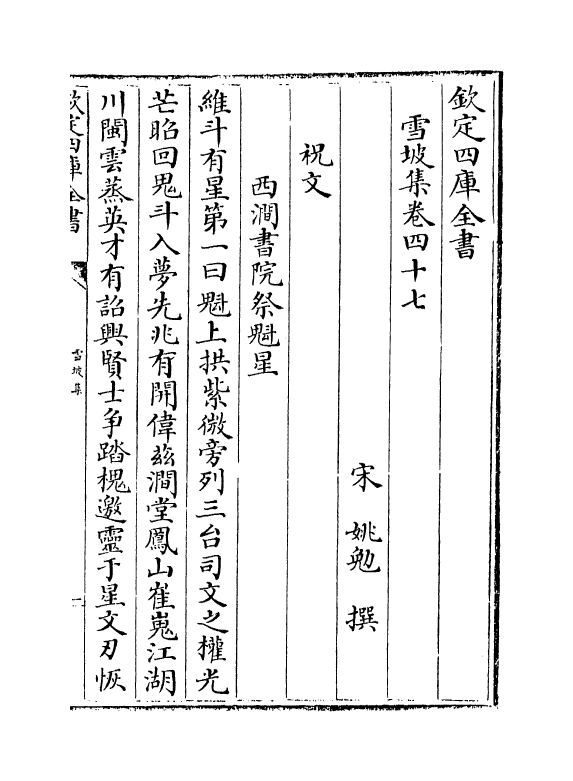 欽定四庫全書
雪坡集卷四十七
宋 姚勉 撰
祝文
西澗書院祭魁星
維斗有星第一曰魁上拱紫微旁列三台司文之權光
芒昭回鬼斗入夢先兆有開偉兹澗堂鳳山崔嵬江湖
川閩雲蒸英才有詔興賢士争踏槐邀靈于星文刃恢
欽定四庫全書
雪坡集
一